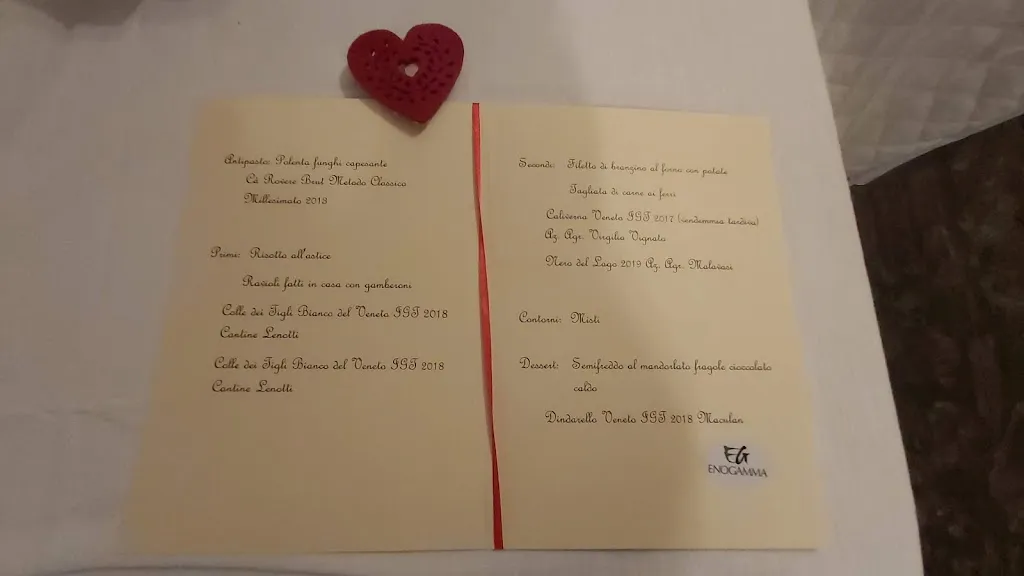 Antipasto: Polenta funghi capesante
Cà Rovere Brut Metodo Classico
Millesimato 2013
Primi: Risotto all'astice
Ravioli fatti in casa con gamberoni
Colle dei Tigli Bianco del Veneto IGT 2018
Cantine Lenotti
Colle dei Tigli Bianco del Veneto IGT 2018
Cantine Lenotti
Secondo: Filetto di branzino al forno con patate
Tagliata di carne ai ferri
Caliverna Veneto IGT 2017 (vendemmia tardiva)
Az. Agr. Virgilio Vignato
Nero del Lago 2019 Az. Agr. Malavasi
Contorni: Misti
Dessert: Semifreddo al mandorlato fragole cioccolato
caldo
Dindarello Veneto IGT 2018 Maculan
EG
ENOGAMMA